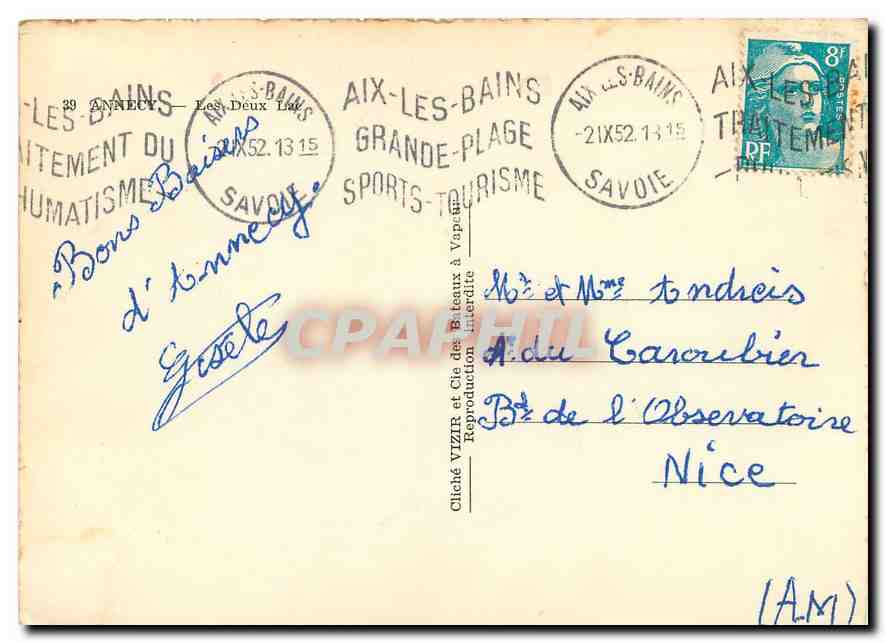 39 ANNECY. — Les Deux Lac
-LES-BAINS
AITEMENT DU
HUMATISME
AIX-LES-BAINS
-2IX52.1315
SAVOIE
AIX-LES-BAINS
GRANDE-PLAGE
SPORTS-TOURISME
AIX-LES-BAINS
-2IX52.1315
SAVOIE
AIX-
LES-BAI
TRAITEMENT
8F
POSTES
RF
Bons Baisers
d'Annecy.
Gisèle
CPAPHIL
Cliché VIZIR et Cie des Bateaux à Vapeur
Reproduction interdite
Mr et Mme Andreis
Av. du Caroubier
Bd de l'Observatoire
Nice
(AM)